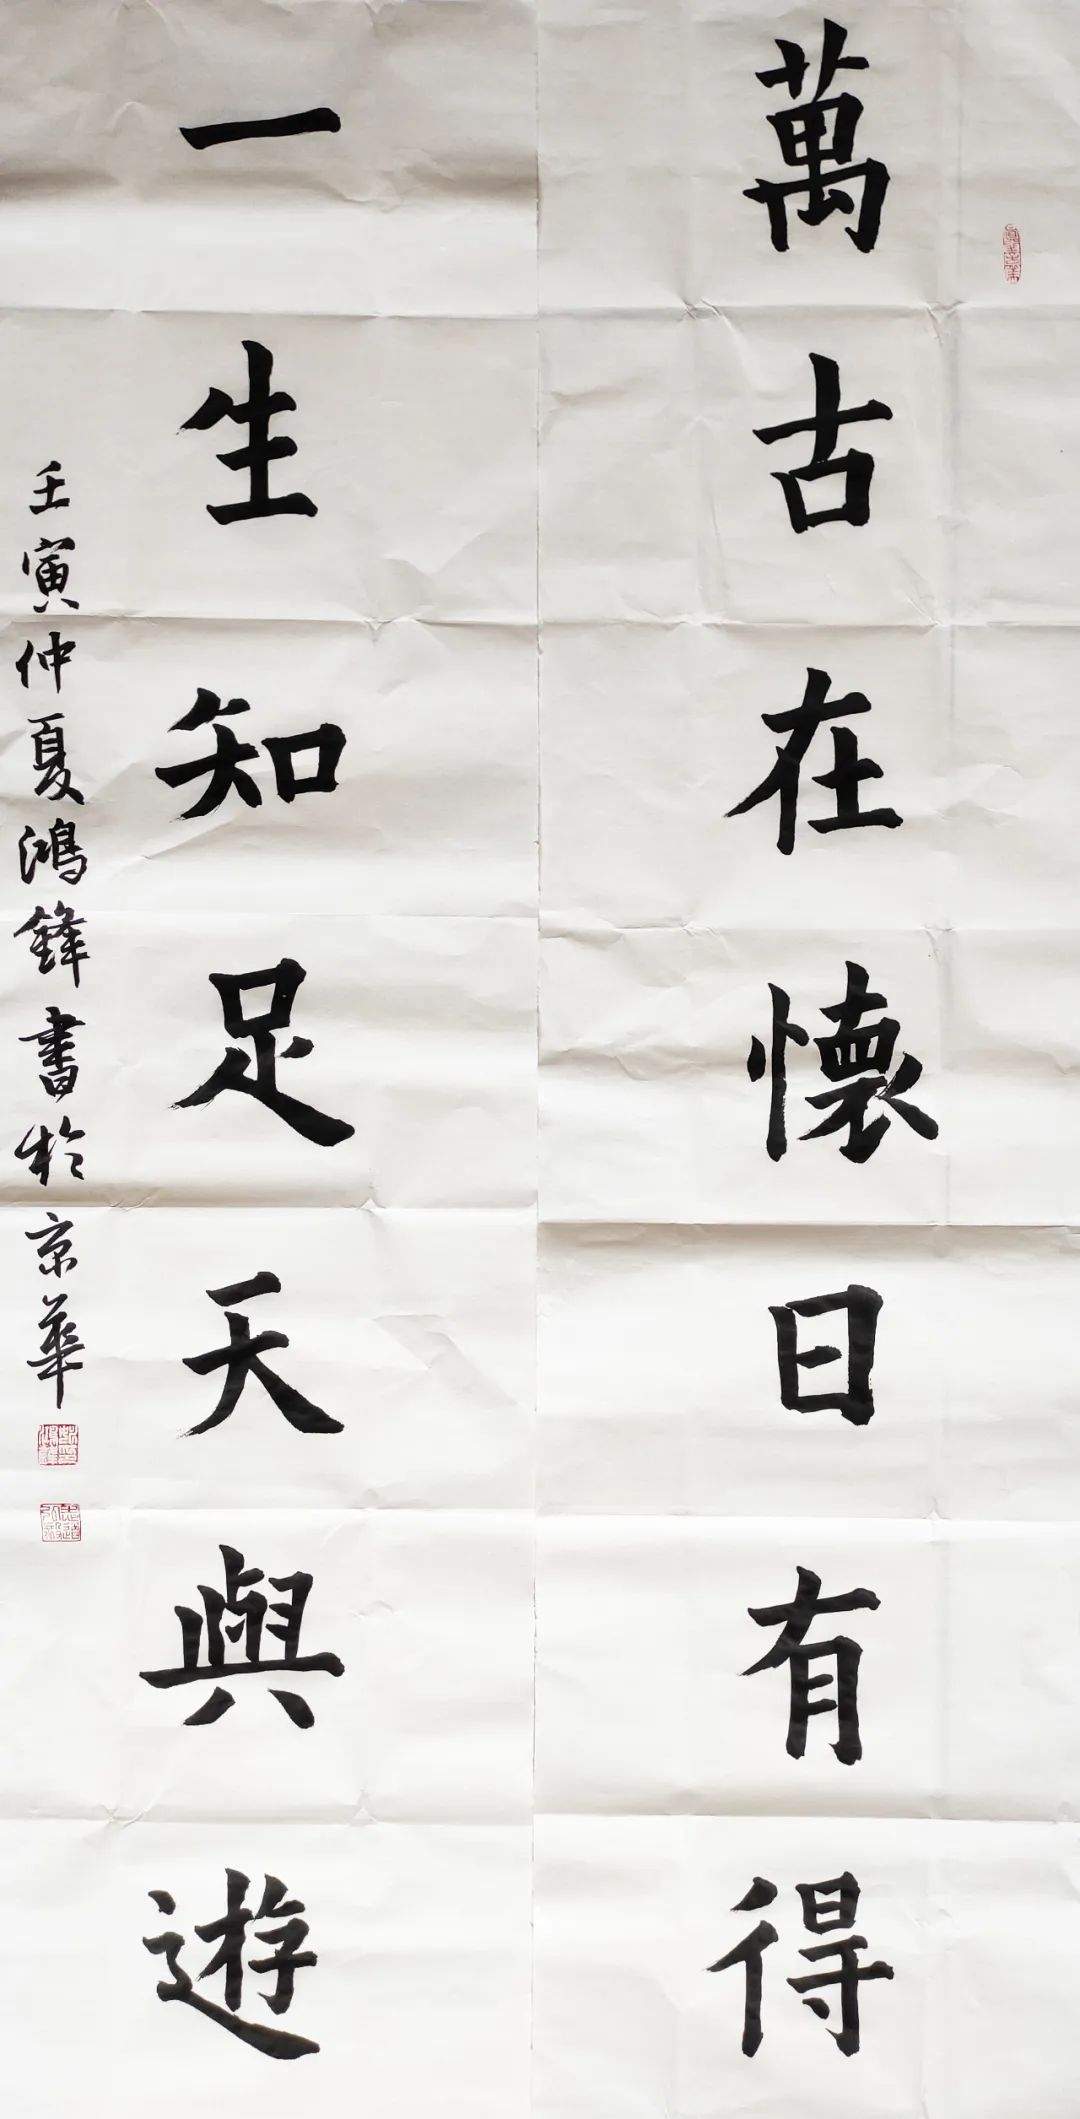 萬古在懷日有得
一生知足天與遊
壬寅仲夏鴻鋒書於京華